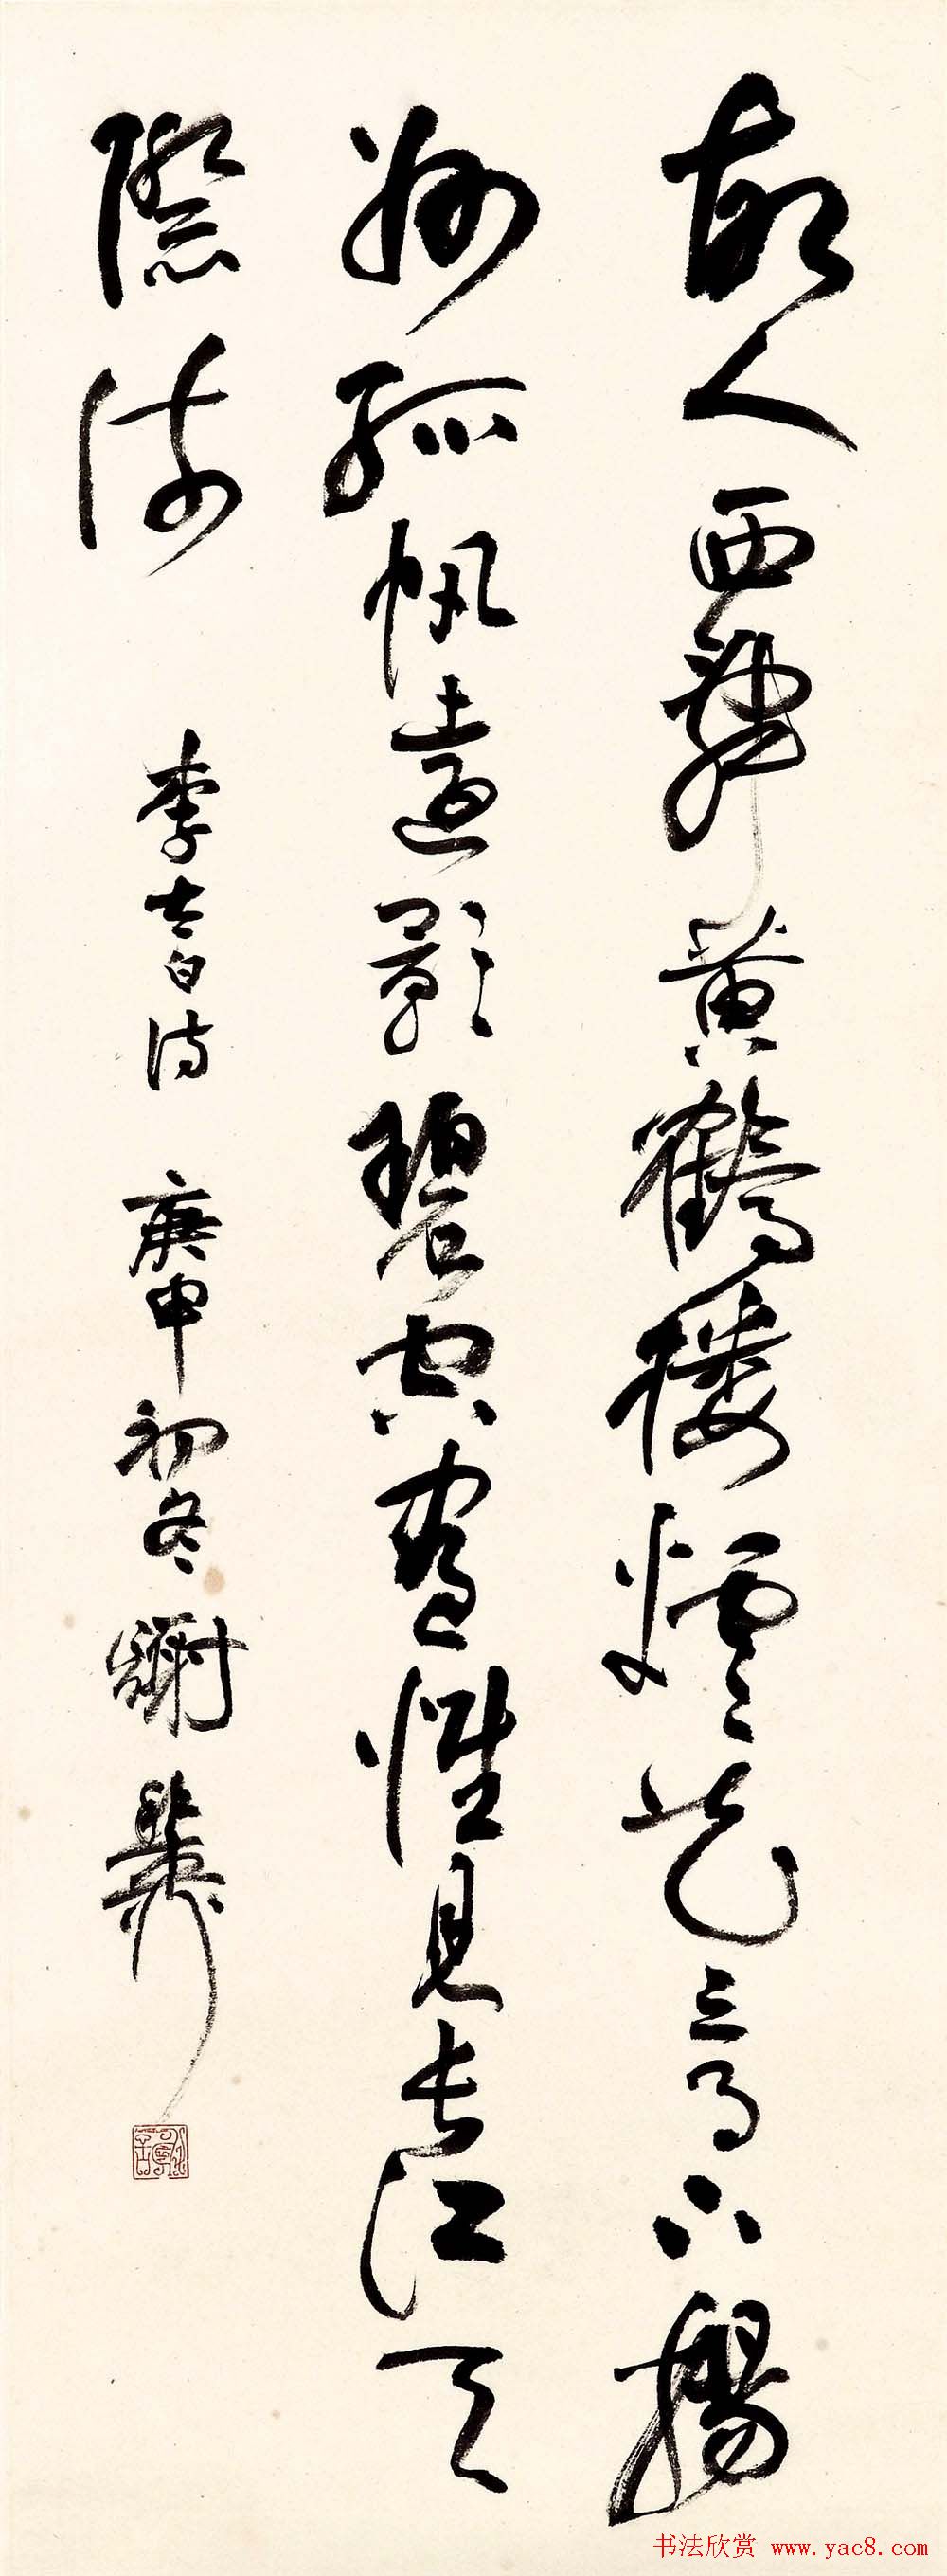 故人西辞黄鹤楼烟花三月下揚
州孤帆遠影碧空盡惟見长江天
際流
李太白诗 庚申初冬 謝無
书法欣赏 www.yac8.com